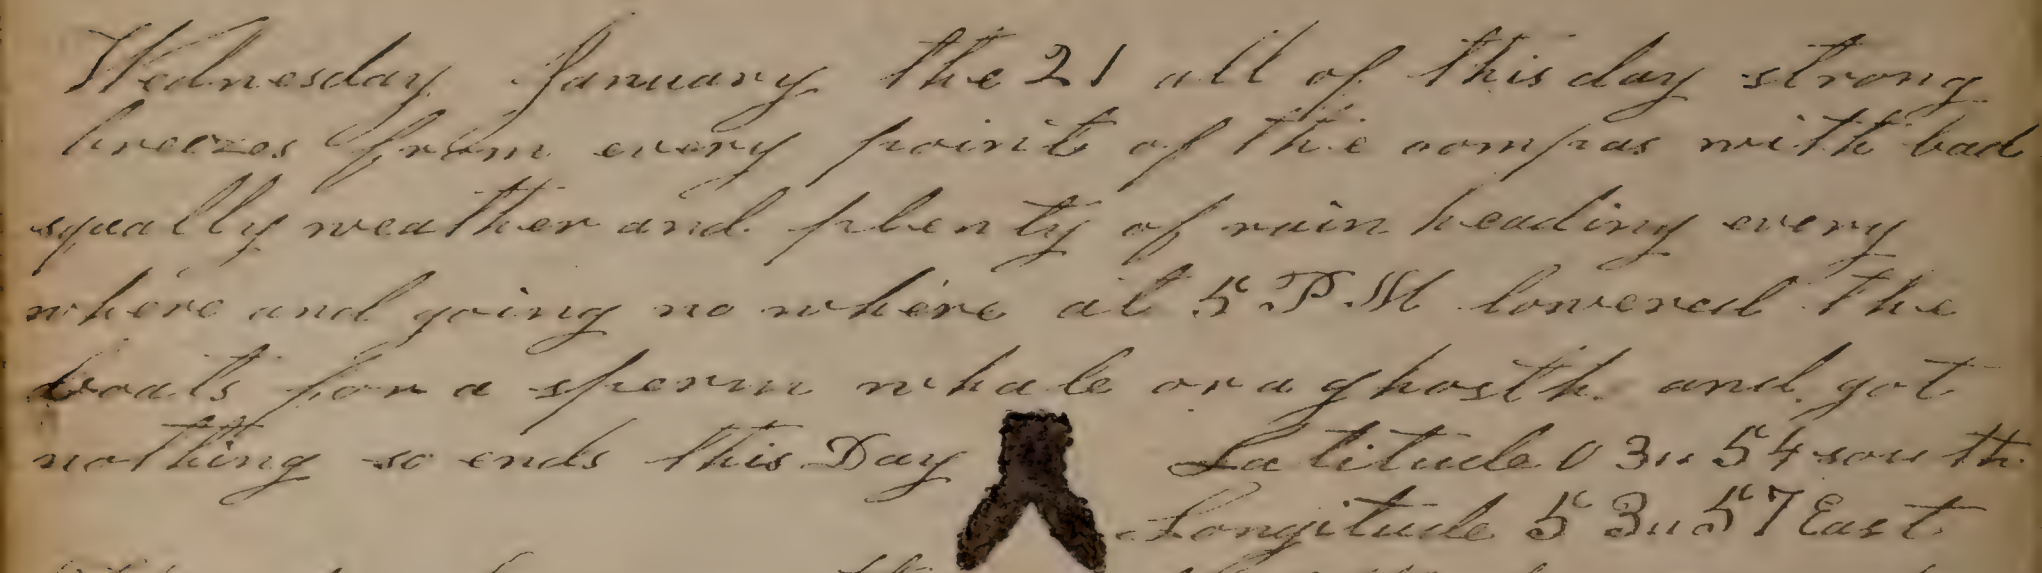 Wednesday January the 21 all of this day strong
breezes from every point of the compas with bad
squally weather and plenty of rain heading every
where and going no where at 5 PM lowered the
boats for a sperm whale or a ghosth and got
nothing so ends this Day Latitude 03 " 54 south
Longitude 53 " 57 East